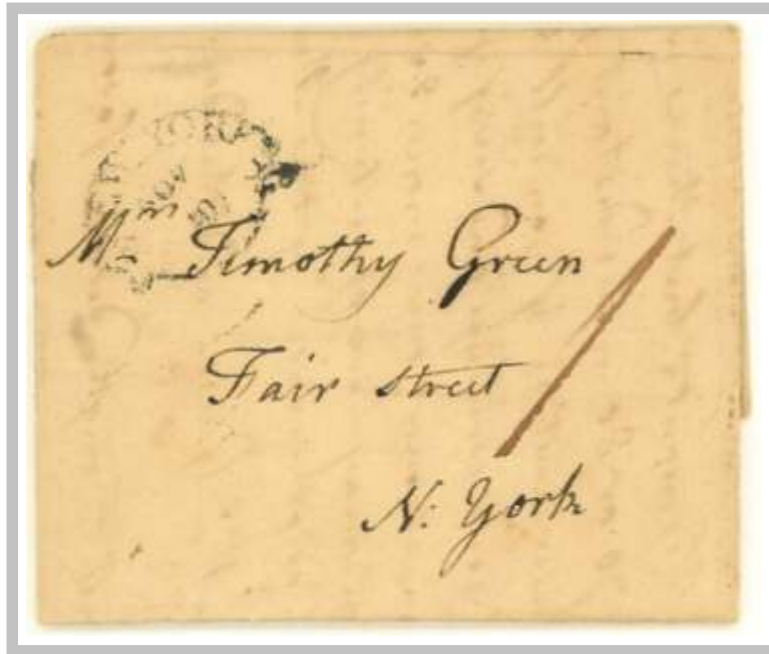 YORK
Timothy Green
Fair street
N: York